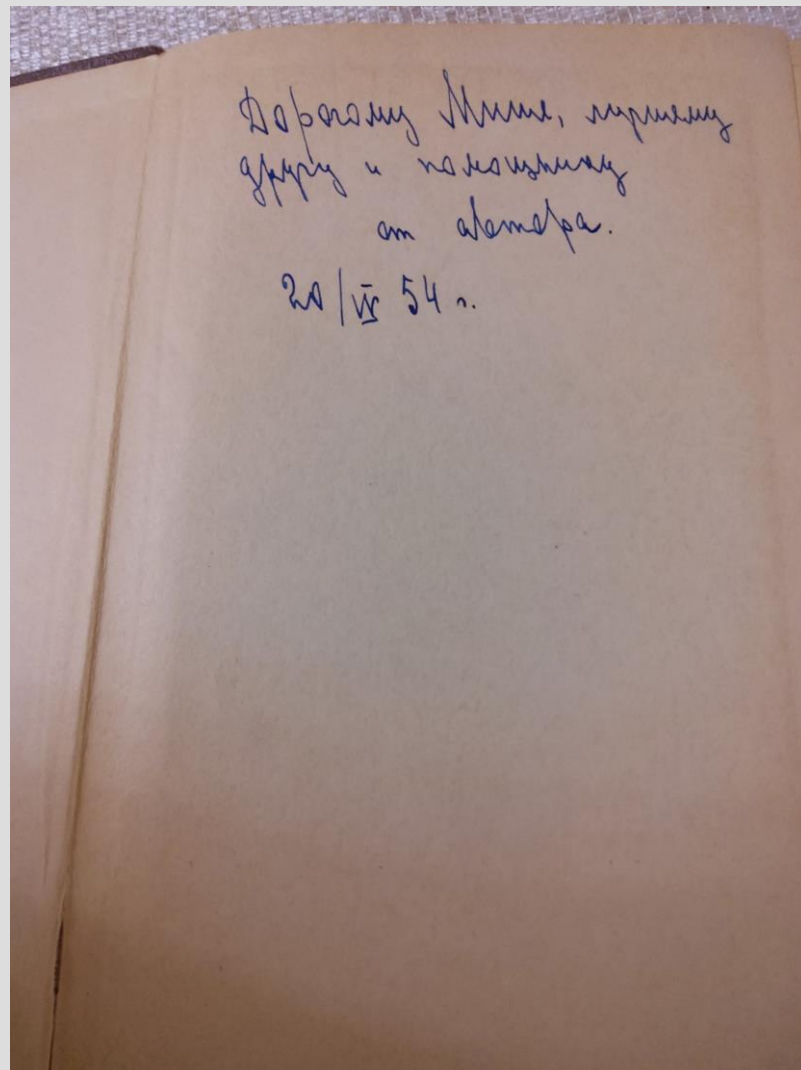 Дорогому Мише, лучшему
другу и помощнику
от автора.
20/IX 54 г.